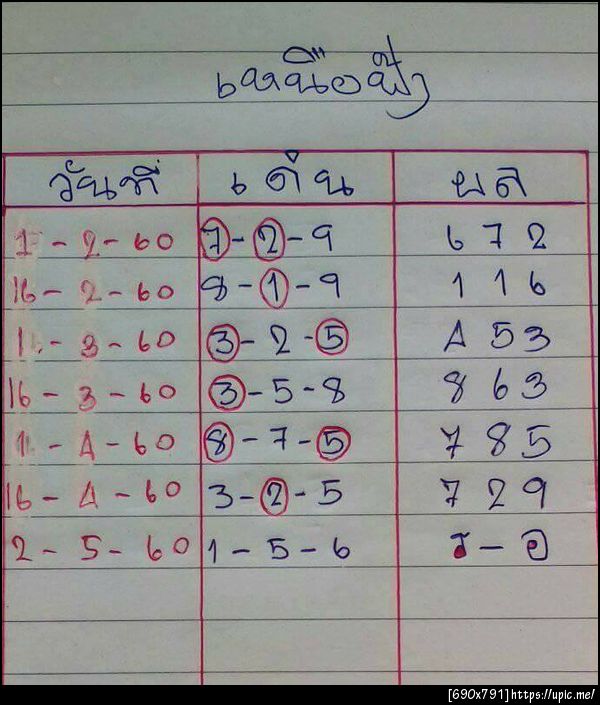 เหนือฟ้า
วันที่ เด่น ผล
1 - 2 - 60 7 - 2 - 9 6 7 2
16 - 2 - 60 8 - 1 - 9 1 1 6
1 - 3 - 60 3 - 2 - 5 4 5 3
16 - 3 - 60 3 - 5 - 8 8 6 3
1 - 4 - 60 8 - 7 - 5 7 8 5
16 - 4 - 60 3 - 2 - 5 7 2 9
2 - 5 - 60 1 - 5 - 6 ร - อ
[690x791]https://upic.me/